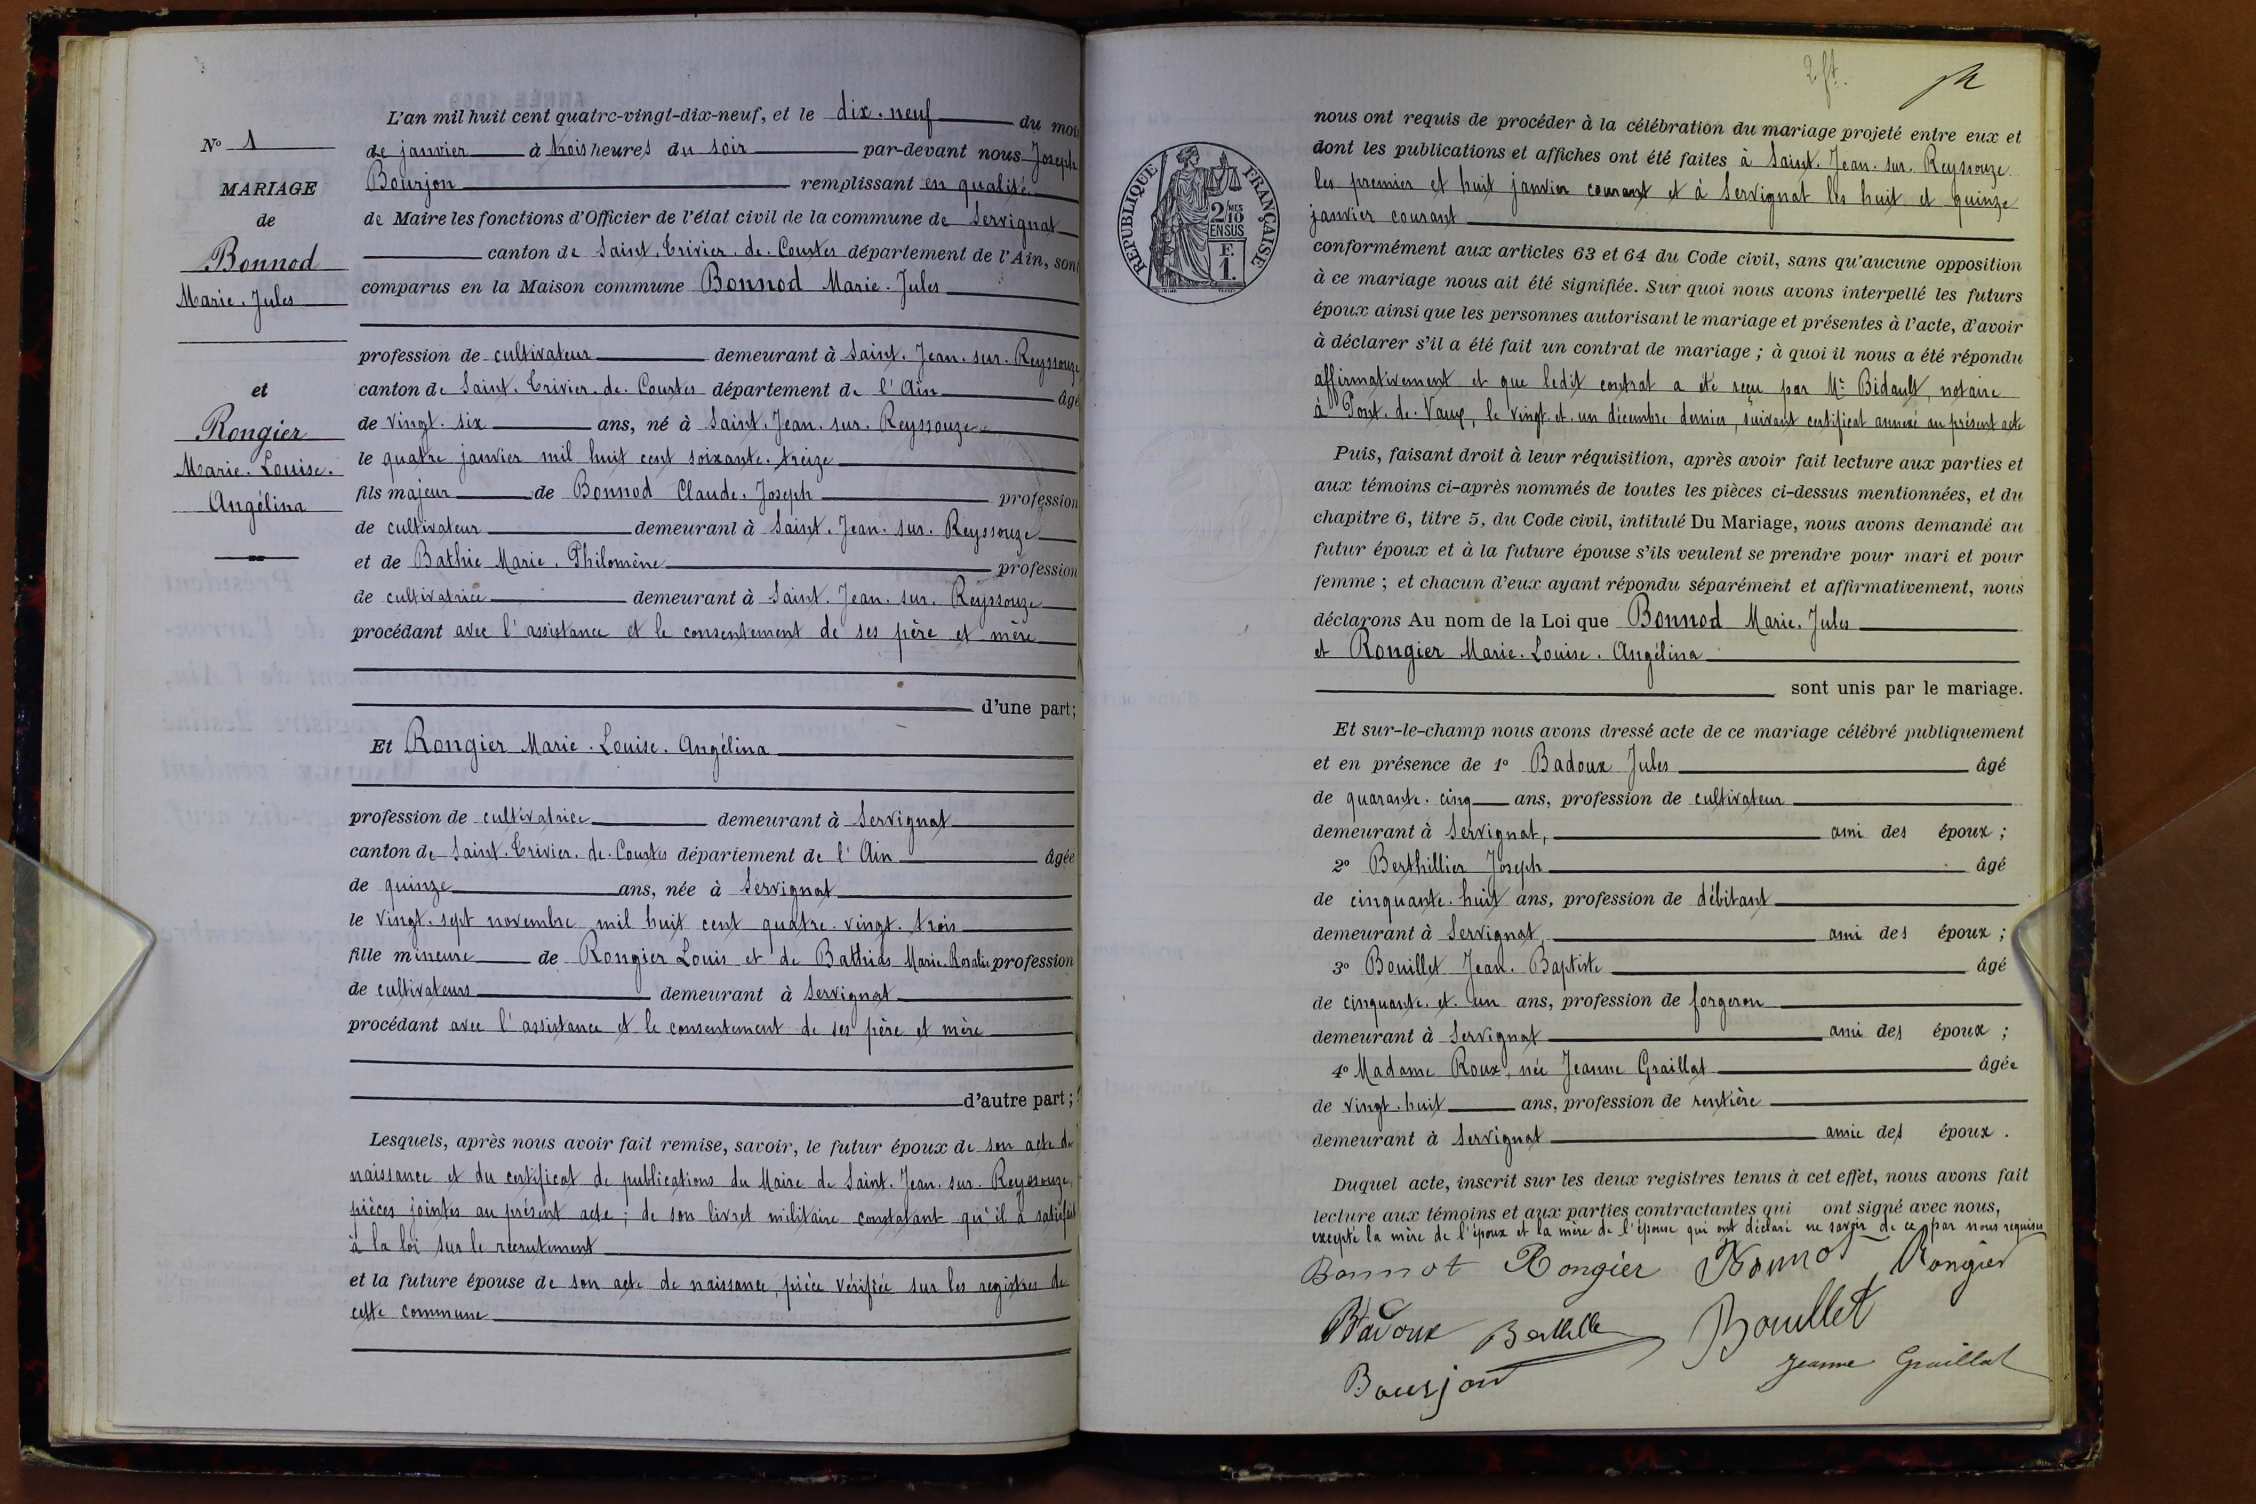 L'an mil huit cent quatre-vingt-dix-neuf, et le dix. neuf du mois
de janvier à trois heures du soir par-devant nous Joseph
Bourjon remplissant en qualité
de Maire les fonctions d'Officier de l'état civil de la commune de Servignat
canton de Saint. Trivier. de. Courtes département de l'Ain, sont
comparus en la Maison commune Bonnod Marie. Jules
profession de cultivateur demeurant à Saint. Jean. sur. Reyssouze
canton de Saint. Trivier. de. Courtes département de l'Ain âgé
de vingt. six ans, né à Saint. Jean. sur. Reyssouze
le quatre janvier mil huit cent soixante. treize
fils majeur de Bonnod Claude. Joseph profession
de cultivateur demeurant à Saint. Jean. sur. Reyssouze
et de Bathie Marie. Philomène profession
de cultivatrice demeurant à Saint. Jean. sur. Reyssouze
procédant avec l'assistance et le consentement de ses père et mère
d'une part;
Et Rongier Marie. Louise. Angélina
profession de cultivatrice demeurant à Servignat
canton de Saint. Trivier. de. Courtes département de l'Ain âgée
de quinze ans, née à Servignat
le vingt. sept novembre mil huit cent quatre. vingt. trois
fille mineure de Rongier Louis et de Bathias Marie. Rosalie profession
de cultivateurs demeurant à Servignat
procédant avec l'assistance et le consentement de ses père et mère
d'autre part;
Lesquels, après nous avoir fait remise, savoir, le futur époux de son acte de
naissance et du certificat de publications du Maire de Saint. Jean. sur. Reyssouze,
pièces jointes au présent acte ; de son livret militaire constatant qu'il a satisfait
à la loi sur le recrutement
et la future épouse de son acte de naissance, pièce vérifiée sur les registres de
cette commune
No 1
MARIAGE
de
Bonnod
Marie. Jules
et
Rongier
Marie. Louise.
Angélina
2 ft.
RÉPUBLIQUE FRANÇAISE
2/10 MES
EN SUS
F.
1.
nous ont requis de procéder à la célébration du mariage projeté entre eux et
dont les publications et affiches ont été faites à Saint. Jean. sur. Reyssouze
les premier et huit janvier courant et à Servignat les huit et quinze
janvier courant
conformément aux articles 63 et 64 du Code civil, sans qu'aucune opposition
à ce mariage nous ait été signifiée. Sur quoi nous avons interpellé les futurs
époux ainsi que les personnes autorisant le mariage et présentes à l'acte, d'avoir
à déclarer s'il a été fait un contrat de mariage ; à quoi il nous a été répondu
affirmativement et que ledit contrat a été reçu par Me Bidault, notaire
à Pont. de. Vaux, le vingt. et. un décembre dernier, suivant certificat annexé au présent acte
Puis, faisant droit à leur réquisition, après avoir fait lecture aux parties et
aux témoins ci-après nommés de toutes les pièces ci-dessus mentionnées, et du
chapitre 6, titre 5, du Code civil, intitulé Du Mariage, nous avons demandé au
futur époux et à la future épouse s'ils veulent se prendre pour mari et pour
femme ; et chacun d'eux ayant répondu séparément et affirmativement, nous
déclarons Au nom de la Loi que Bonnod Marie. Jules
et Rongier Marie. Louise. Angélina
sont unis par le mariage.
Et sur-le-champ nous avons dressé acte de ce mariage célébré publiquement
et en présence de 1o Badoux Jules âgé
de quarante. cinq ans, profession de cultivateur
demeurant à Servignat, ami des époux ;
2o Berthillier Joseph âgé
de cinquante. huit ans, profession de débitant
demeurant à Servignat, ami des époux ;
3o Bouillet Jean. Baptiste âgé
de cinquante. et. un ans, profession de forgeron
demeurant à Servignat ami des époux ;
4o Madame Roux, née Jeanne Graillat âgée
de vingt. huit ans, profession de rentière
demeurant à Servignat amie des époux.
Duquel acte, inscrit sur les deux registres tenus à cet effet, nous avons fait
lecture aux témoins et aux parties contractantes qui ont signé avec nous,
excepté la mère de l'époux et la mère de l'épouse qui ont déclaré ne savoir de ce par nous requises
Bonnot Rongier Bonnot Rongier
Badoux Bouillet
Jeanne Graillat
Bourjon